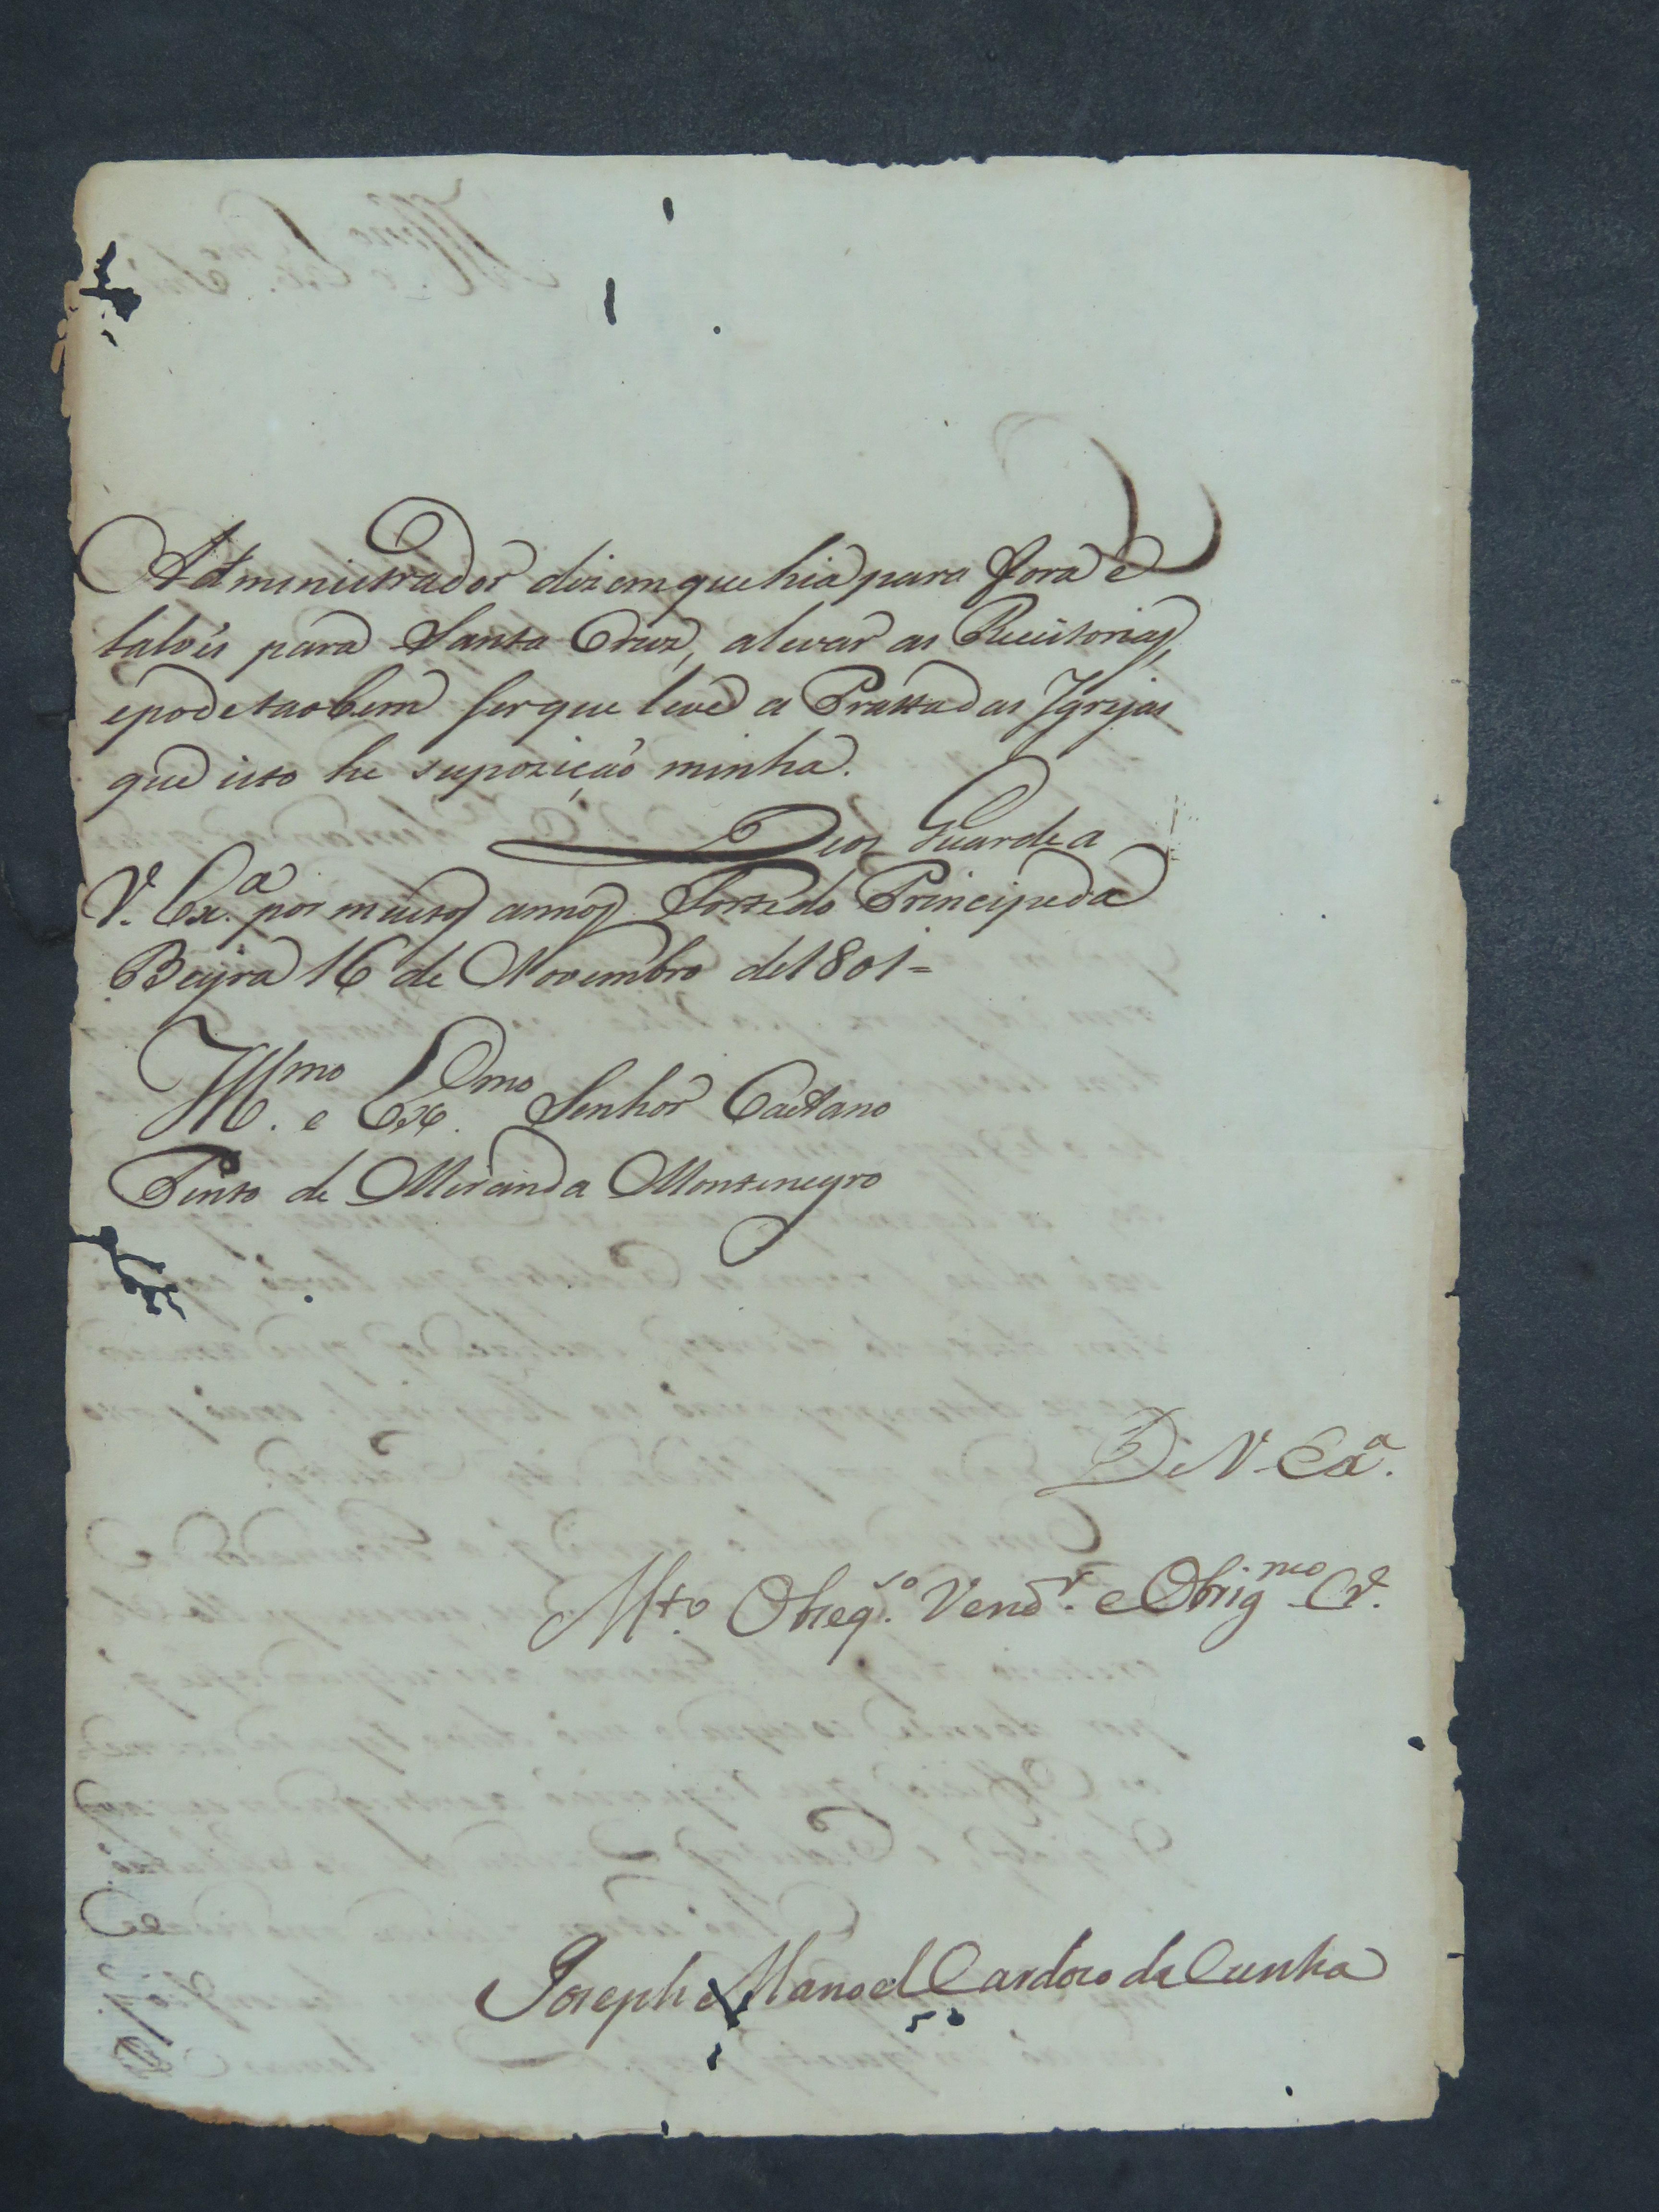 Administrador dizem que hia para fora e
talvés para Santa Cruz, alevar as Receitorias,
epode taobem ser que leve a Pratta das Igrejas
que isto he supozição minha.
Deos Guarde a
V. Ex.ª por muitos annos Forte do Principe da
Beyra 16 de Novembro de 1801=
Ill.mo e Ex.mo Senhor Caetano
Pinto de Miranda Montenegro
De V. Exª.
Mto. Obseq.so Vend.r e Obrig.mo Cr.
Joseph Manoel Cardozo da Cunha